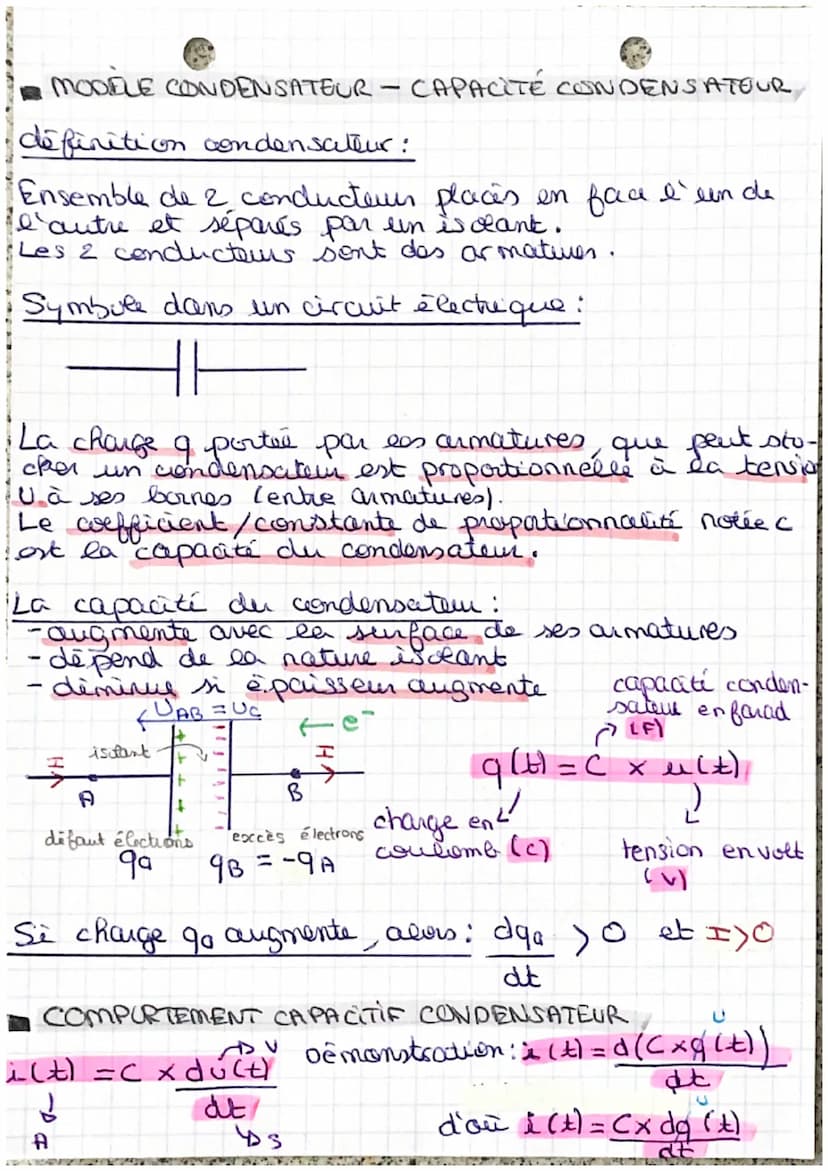 MODÈLE CONDENSATEUR - CAPACITÉ CONDENSATEUR
définition condensateur :
Ensemble de 2 conducteurs placés en face l'un de
l'autre et séparés par un isolant.
Les 2 conducteurs sont des armatures.
Symbole dans un circuit électrique :
La charge q portée par les armatures, que peut sto-
cker un condensateur est proportionnelle à la tension
U à ses bornes (entre armatures).
Le coefficient/constante de proportionnalité notée C
est la capacité du condensateur.
La capacité du condensateur :
- augmente avec la surface de ses armatures
- dépend de la nature isolant
- diminue si épaisseur augmente
capacité conden-
sateur en farad
(F)
UAB = UC
← e-
isolant
I
I
A
B
q(t) = C x u(t)
défaut électrons
excès électrons
qa
qB = -qA
charge en
coulomb (C)
tension en volt
(V)
Si charge qa augmente, alors : dqa/dt > 0 et I>0
COMPORTEMENT CAPACITIF CONDENSATEUR
i(t) = C x du(t)/dt
V
A
s
Démonstration : i(t) = d(C x q(t))/dt
U
d'où i(t) = C x dq(t)/dt
U